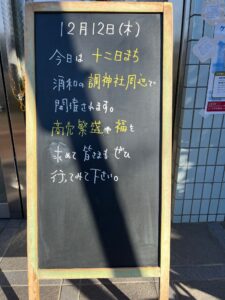 12月12日(木)
今日は 十二日まち
浦和の調神社周辺で
開催されます。
商売繁盛や福を
求めて 皆さまも ぜひ
行ってみて下さい。